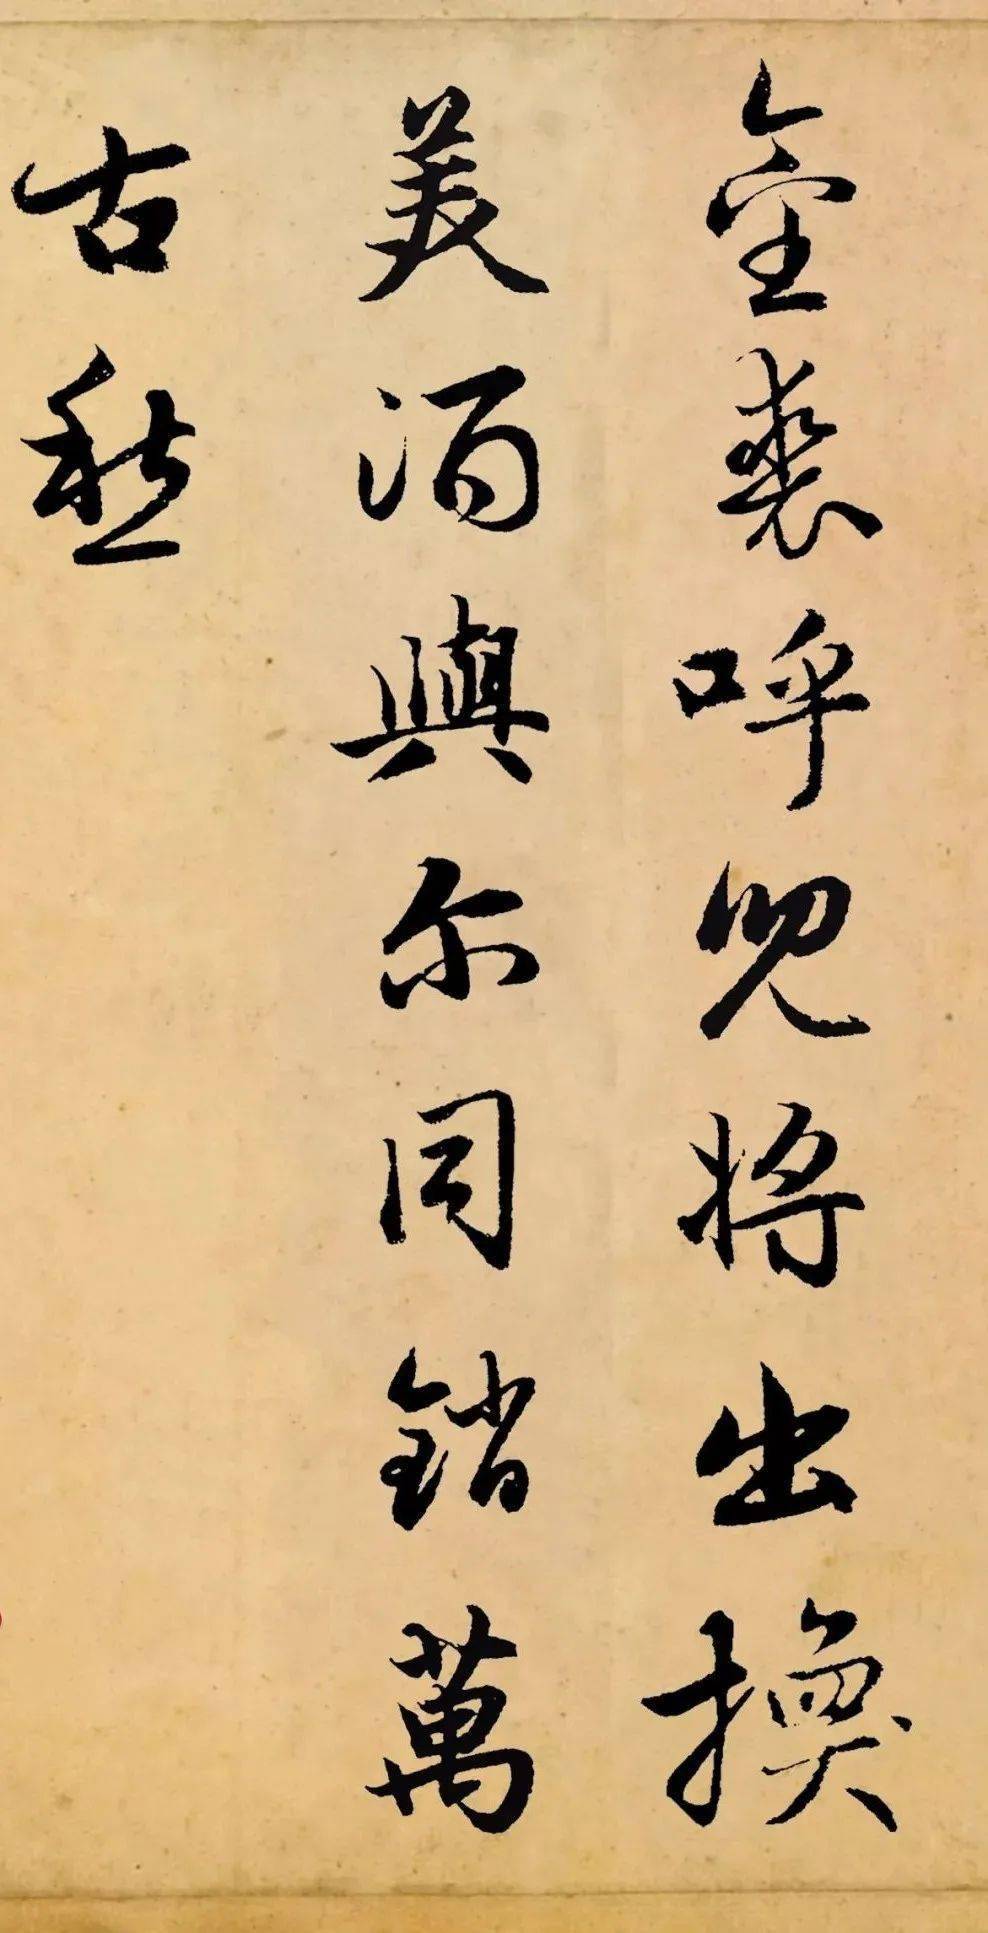 金裘呼兒將出換
美酒與尔同銷萬
古愁